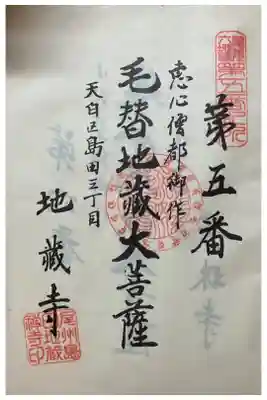 第五番
恵心僧都御作
毛替地蔵大菩薩
天白区島田三丁目
地蔵寺